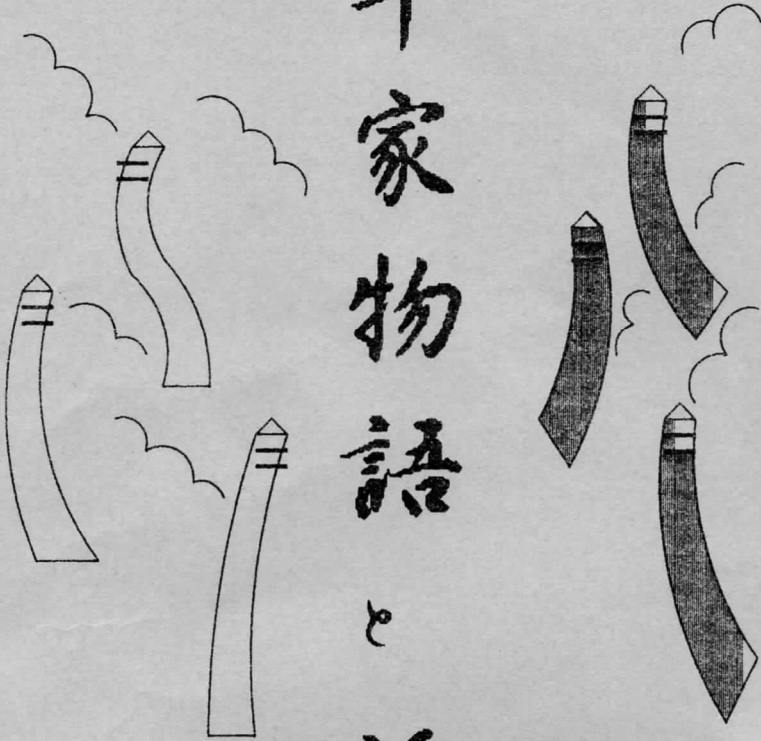 家物語と